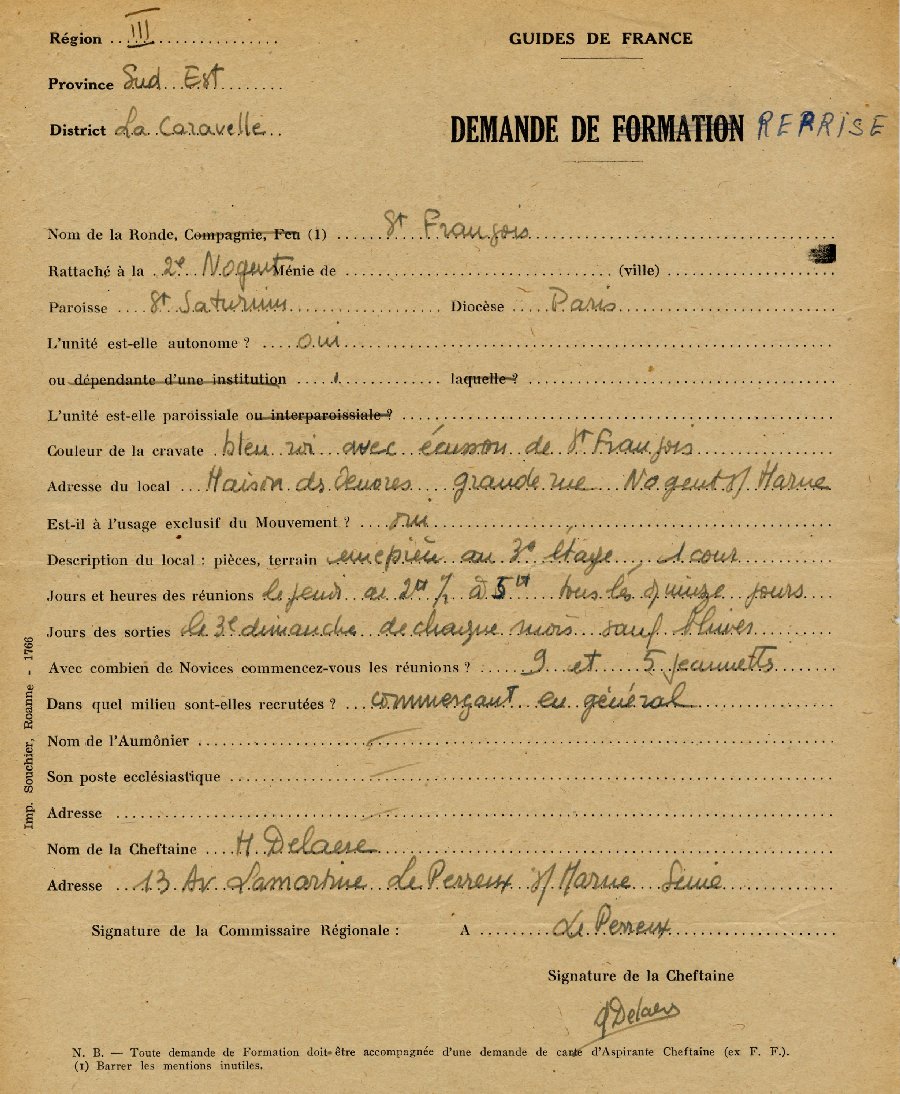 Région III
GUIDES DE FRANCE
Province Sud Est
District La Caravelle
DEMANDE DE FORMATION REPRISE
Nom de la Ronde, Compagnie, Feu (1) St François
Rattaché à la 2e Nogent Ménie de (ville)
Paroisse St Saturnin Diocèse Paris
L'unité est-elle autonome ? oui
ou dépendante d'une institution laquelle ?
L'unité est-elle paroissiale ou interparoissiale ?
Couleur de la cravate bleu roi avec écusson de St François
Adresse du local Maison ds Oeuvres grande rue Nogent s/ Marne
Est-il à l'usage exclusif du Mouvement ? oui
Description du local : pièces, terrain au 3e étage, 1 cour
Jours et heures des réunions le jeudi de 2h ½ à 5h tous les quinze jours
Jours des sorties le 3e dimanche de chaque mois sauf l'hiver
Avec combien de Novices commencez-vous les réunions ? 9 et 5 jeannetts
Dans quel milieu sont-elles recrutées ? commerçant en général
Nom de l'Aumônier
Son poste ecclésiastique
Adresse
Nom de la Cheftaine H Delaere
Adresse 13 Av Lamartine Le Perreux s/ Marne Seine
Signature de la Commissaire Régionale : A Le Perreux
Signature de la Cheftaine
Delaere
N. B. — Toute demande de Formation doit être accompagnée d'une demande de carte d'Aspirante Cheftaine (ex F. F.).
(1) Barrer les mentions inutiles.
Imp. Souchier, Roanne - 1766